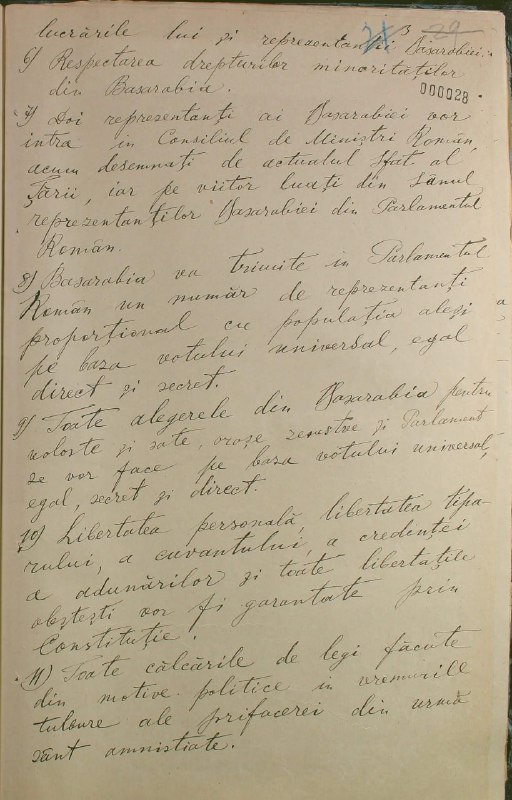 3 29
lucrările lui și reprezentanții Basarabiei.
6) Respectarea drepturilor minorităților
din Basarabia.
000028
7) Doi reprezentanți ai Basarabiei vor
intra in Consiliul de Miniștri Român,
acum desemnați de actualul Sfat al
Țării, iar pe viitor luați din sânul
reprezentanților Basarabiei din Parlamentul
Român.
8) Basarabia va trimite in Parlamentul
Român un număr de reprezentanți
proporțional cu populația aleși
pe baza votului universal, egal
direct și secret.
9) Toate alegerele din Basarabia pentru
voloste și sate, orașe zemstve și Parlament
se vor face pe baza votului universal,
egal, secret și direct.
10) Libertatea personală, libertatea tipa-
rului, a cuvantului, a credinței
a adunărilor și toate libertațile
obștești vor fi garantate prin
Constituție.
11) Toate călcările de legi făcute
din motive politice in vremurile
tulbure ale prifacerei din urmă
sânt amnistiate.